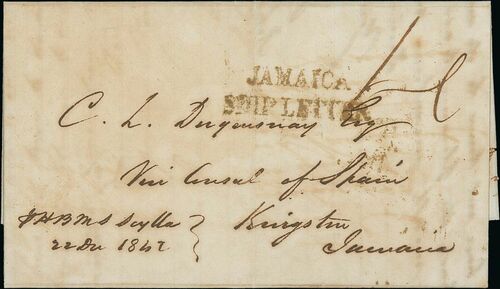 JAMAICA
SHIP LETTER
C. L. Duquesnay Esq
Vice Consul of Spain
Kingston
Jamaica
p HBMS Scylla
22 Dec 1842